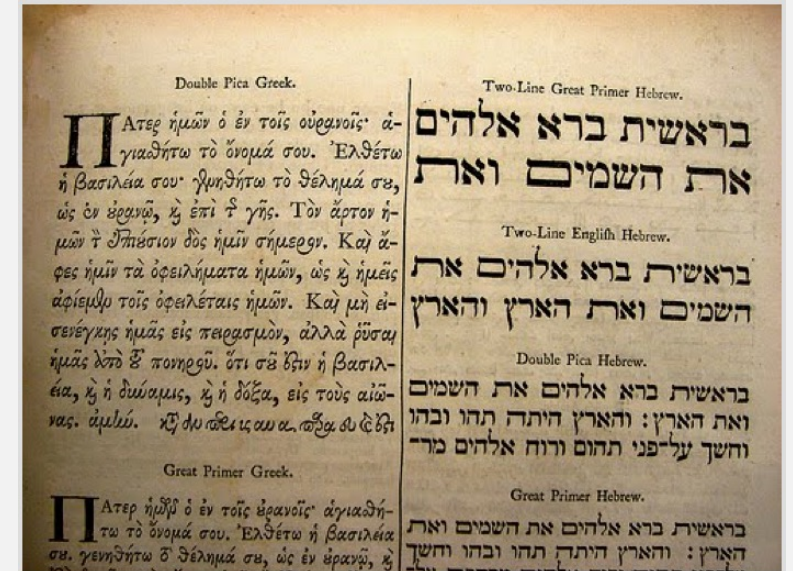 Double Pica Greek.
ΠΑτερ ἡμῶν ὁ ἐν τοῖς οὐρανοῖς· ἁ-
γιασθήτω τὸ ὄνομά σου. Ἐλθέτω
ἡ βασιλεία σου· γενηθήτω τὸ θέλημά σȣ,
ὡς ἐν ȣρανῷ, ϗ ἐπὶ τ γῆς. Τὸν ἄρτον ἡ-
μῶν τ ἐπιȣσιον δὸς ἡμῖν σήμερον. Καὶ ἄ-
φες ἡμῖν τὰ ὀφειλήματα ἡμῶν, ὡς ϗ ἡμεῖς
ἀφίεμεν τοῖς ὀφειλέταις ἡμῶν. Καὶ μὴ εἰ-
σενέγκης ἡμᾶς εἰς πειρασμὸν, ἀλλὰ ῥῦσαι
ἡμᾶς ἀπὸ τȣ πονηρȣ͂. ὅτι σȣ͂ ἐϛιν ἡ βασιλ-
εία, ϗ ἡ δύναμις, ϗ ἡ δόξα, εἰς τοὺς αἰῶ-
νας. ἀμήν.
Great Primer Greek.
ΠΑτερ ἡμῶν ὁ ἐν τοῖς ȣρανοῖς· ἁγιασθή-
τω τὸ ὄνομά σου. Ἐλθέτω ἡ βασιλεία
σȣ. γενηθήτω τὸ θέλημά σȣ, ὡς ἐν ȣρανῷ, ϗ
Two-Line Great Primer Hebrew.
בראשית ברא אלהים
את השמים ואת
Two-Line Engliſh Hebrew.
בראשית ברא אלהים את
השמים ואת הארץ והארץ
Double Pica Hebrew.
בראשית ברא אלהים את השמים
ואת הארץ: והארץ היתה תהו ובהו
וחשך על־פני תהום ורוח אלהים מר־
Great Primer Hebrew.
בראשית ברא אלהים את השמים ואת
הארץ: והארץ היתה תהו ובהו וחשך